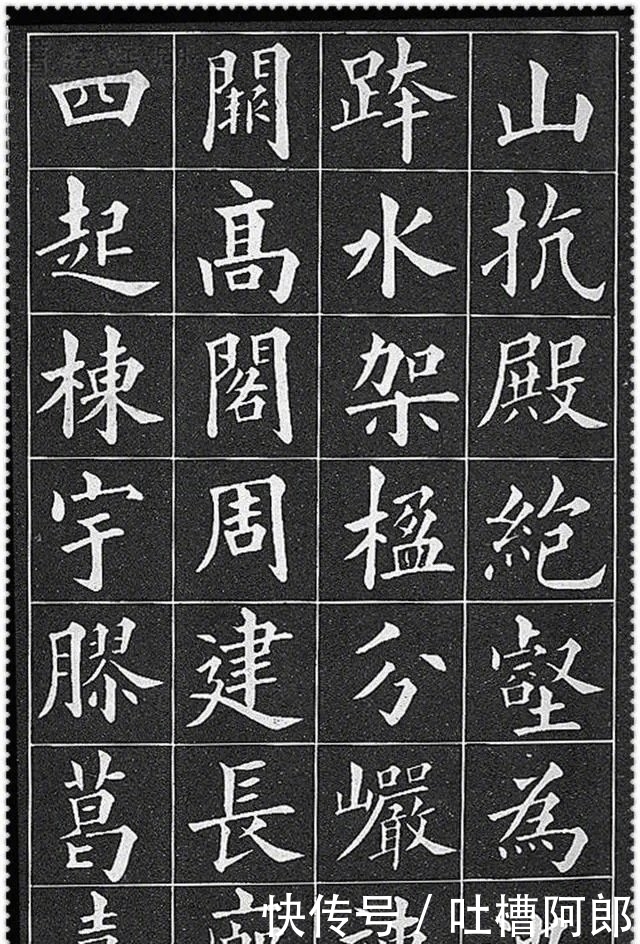 山抗殿絶壑為
跨水架楹分巖
闕高閣周建長
四起棟宇膠葛
快传号/吐槽阿郎